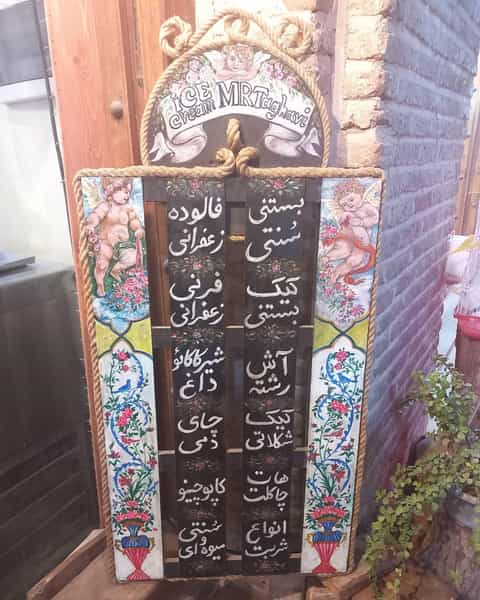 ICE cream MR Taghavi
بستنی
سُنتی
کیک
بستنی
آش
رشته
کیک
شکلاتی
هات
چاکلت
انواع
شربت
فالوده
زعفرانی
فرنی
زعفرانی
شیرکاکائو
داغ
چای
دمی
کاپوچینو
سُنتی
و
میوه ای